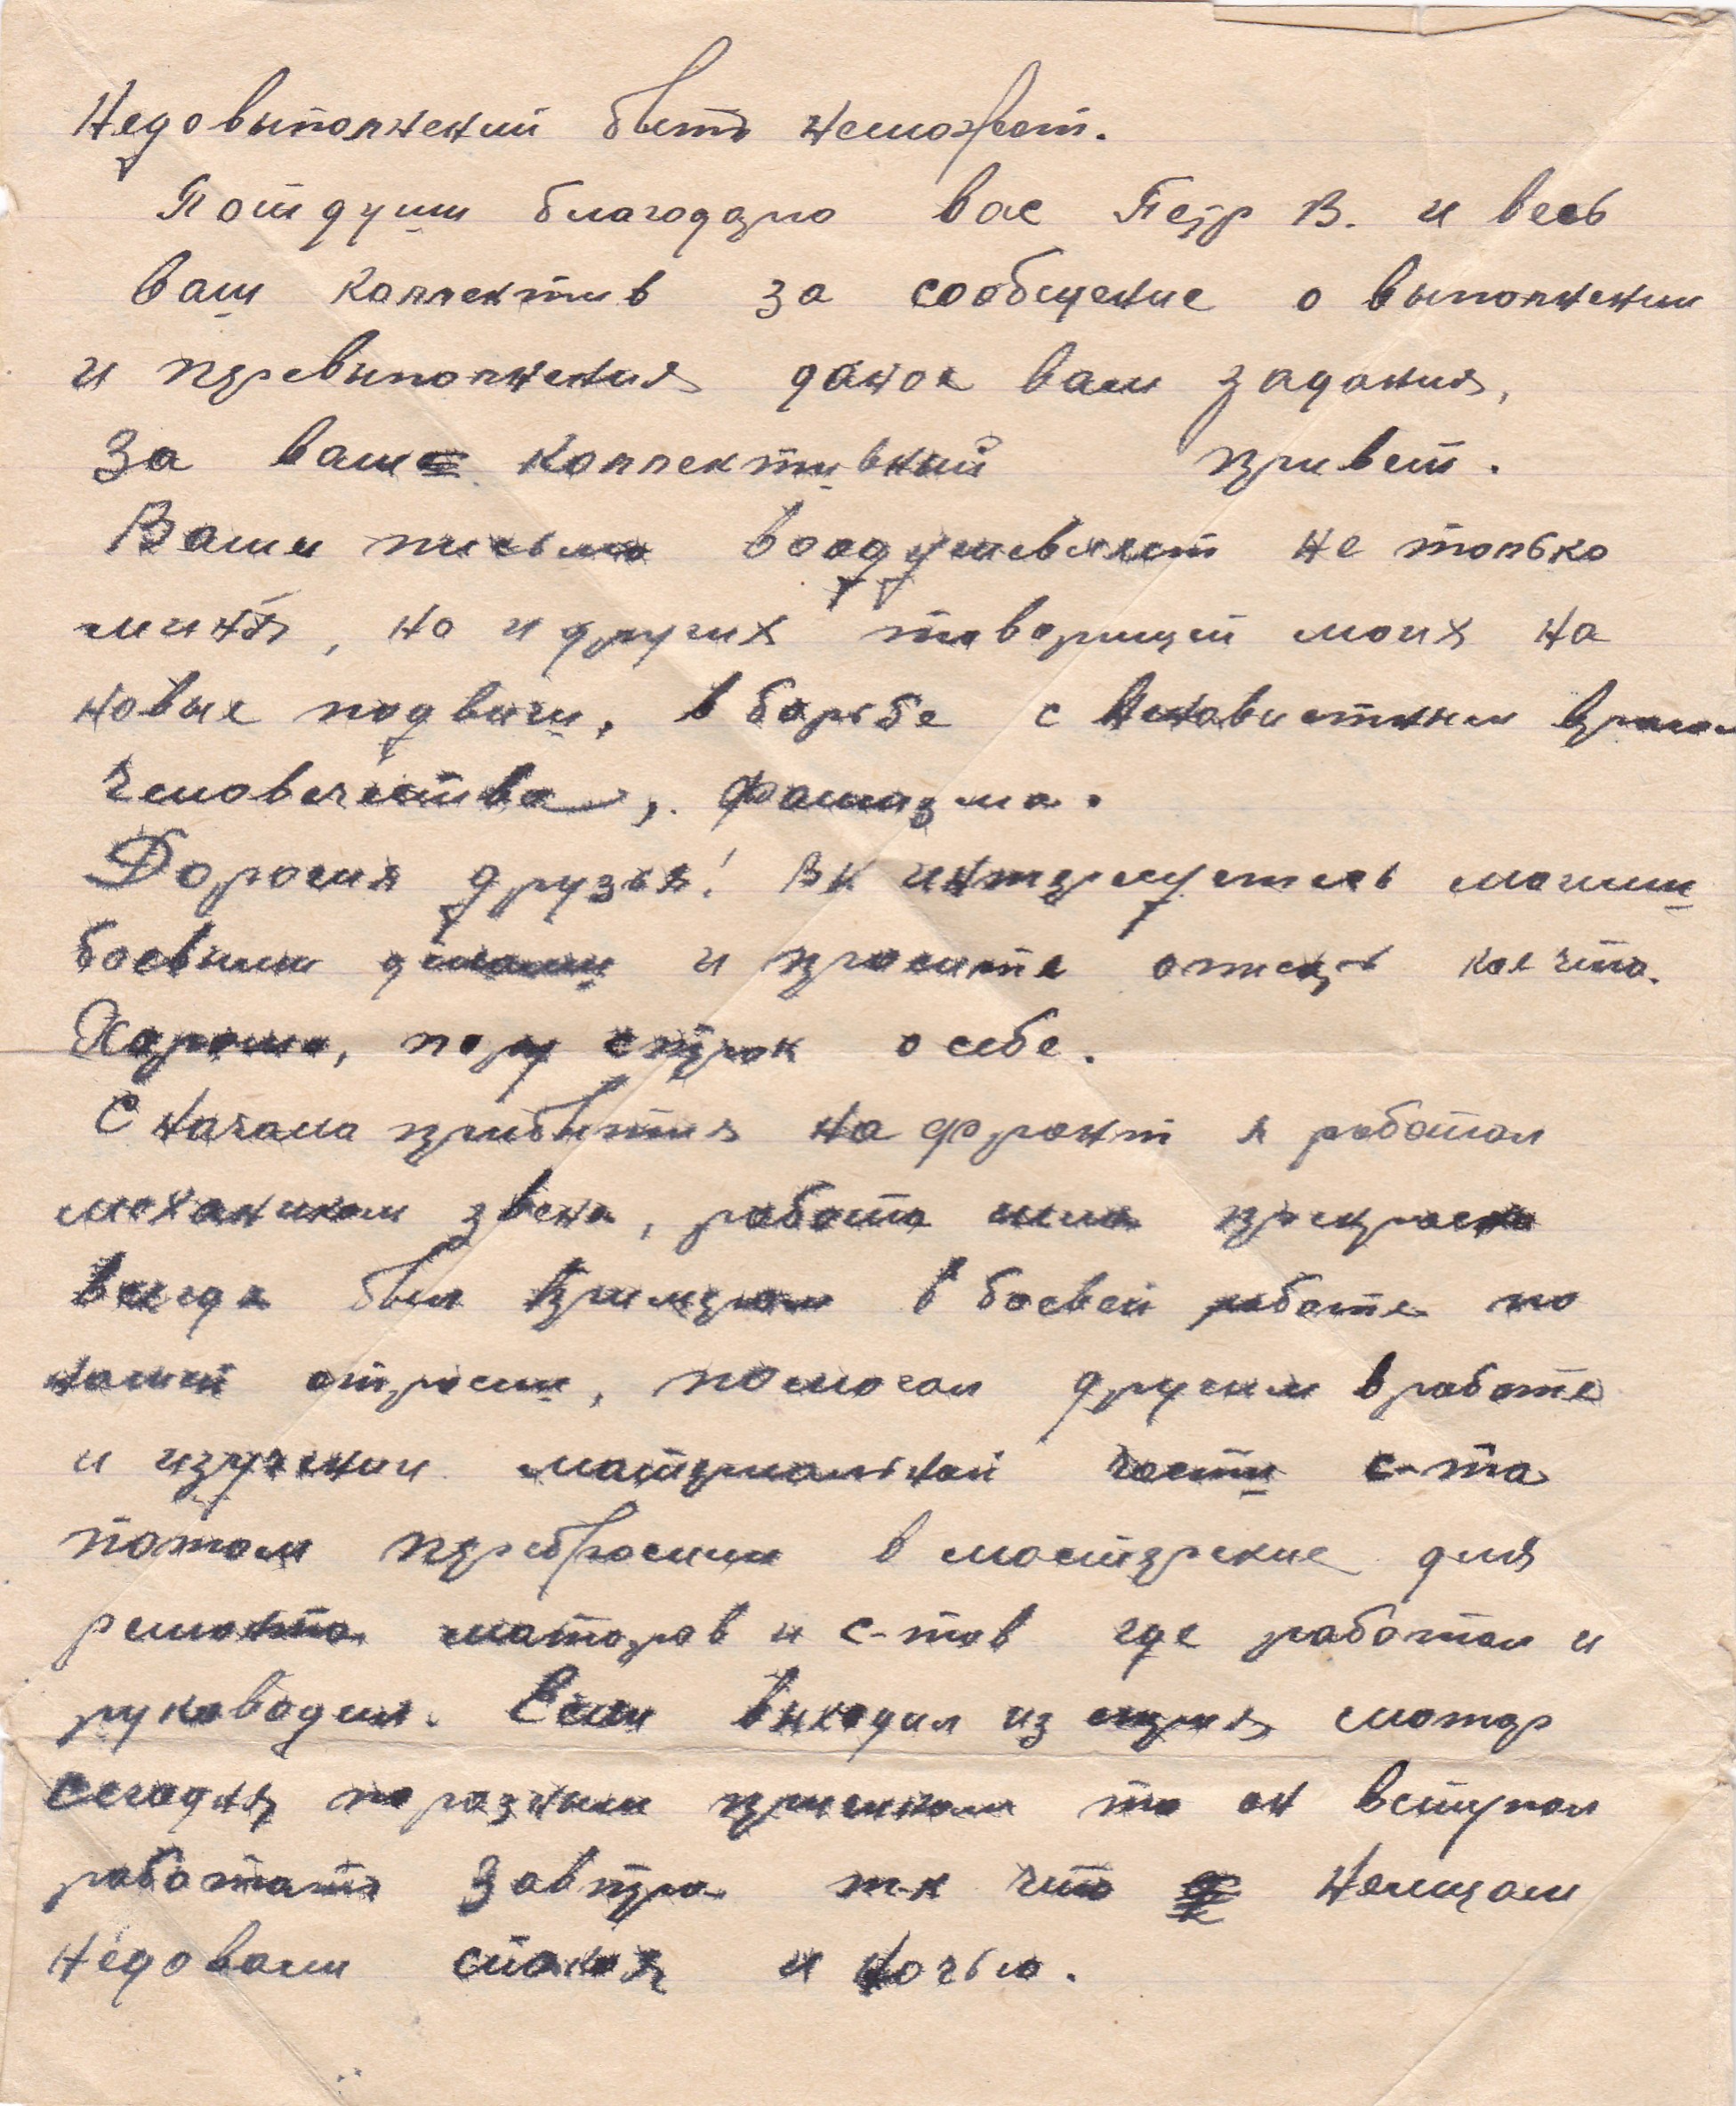 Недовыполнений быть неможет.
Пот души благодарю вас Петр В. и весь
ваш коллектив за сообщение о выполнении
и перевыполнения даное вам задания,
За ваше коллективный привет.
Ваши письмо воодушевляет не только
миня, но и других товарищей моих на
новые подвиги, в борьбе с ненавистным врагом
человечества, фашизма.
Дорогия друзья! Вы интересуетесь моими
боевыми делами и просите описать кое что.
Хорошо, пару строк о себе.
С начала прибытия на фронт я работал
механиком звена, работа шла прекрасно
всегда был примером в боевой работе по
нашей отросли, помогал другим в работе
и изучении материальной части с-та
потом перебросили в мастерские для
ремонта маторов и с-тов где работал и
руководил. Если выходил из строя мотор
сегодня по разным причинам то он вступал
работать завтра т-к что немцам
недовали спакоя и ночью.